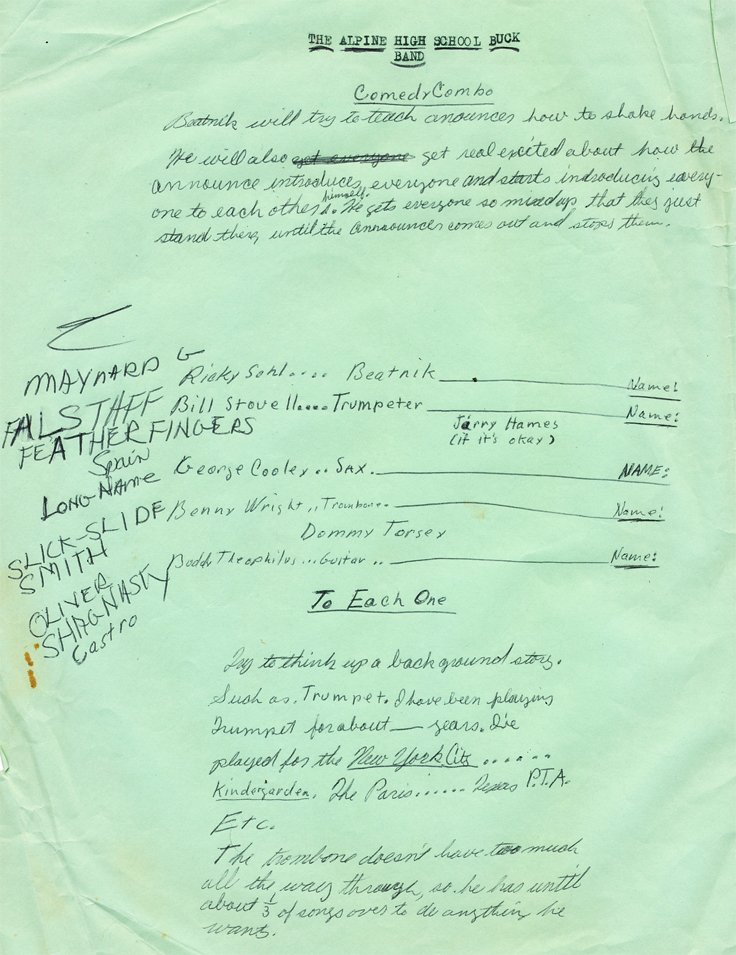 THE ALPINE HIGH SCHOOL BUCK
BAND
Comedy Combo
Beatnik will try to teach anouncer how to shake hands.
We will also get everyone get real excited about how the
announce introduces everyone and starts introducing every-
one to each other himself. He gets everyone so mixed up that they just
stand there, until the announcer comes out and stops them.
MAYNARD G Ricky Sohl.... Beatnik Name:
FALSTAFF Bill Stovell.... Trumpeter Name:
FEATHERFINGERS Jarry Hames
(if it's okay)
Spain
LONG NAME George Cooley.. Sax. NAME:
SLICK-SLIDE Benny Wright.. Trombone.. Name:
SMITH Dommy Torsey
OLIVER Buddy Theophilus... Guitar .. Name:
SHAGNASTY
Castro
To Each One
Try to think up a background story.
Such as. Trumpet. I have been playing
Trumpet for about — years. I've
played for the New York City ......
Kindergarden. The Paris...... Texas P.T.A.
Etc.
The trombone doesn't have too much
all the way through, so he has until
about 1/3 of songs over to do anything he
wants.